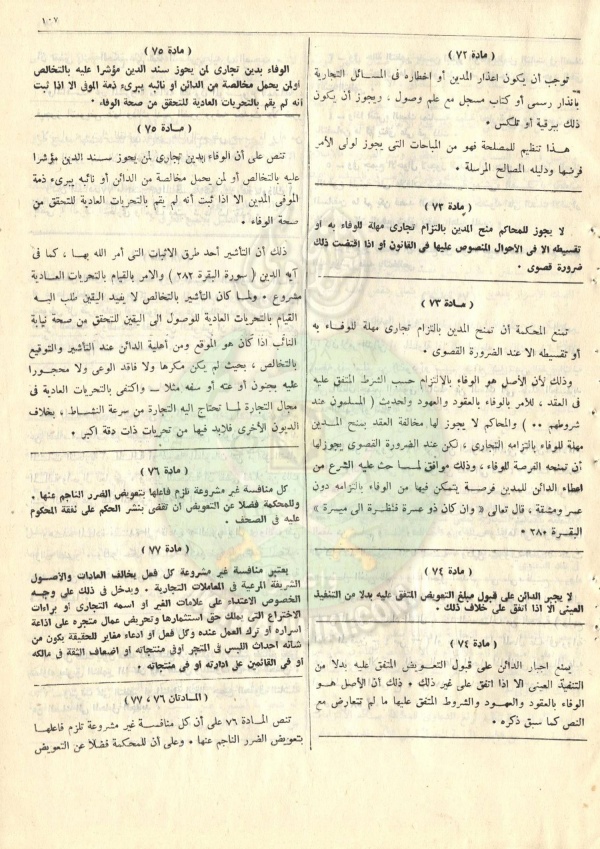 ١٠٧
( مادة ٧٢ )
توجب أن يكون اعذار المدين أو اخطاره فى المسائل التجارية
بانذار رسمى أو كتاب مسجل مع علم وصول ، ويجوز أن يكون
ذلك ببرقية أو تلكس ٠
هـذا تنظيم للمصلحة فهو من المباحات التى يجوز لولى الأمر
فرضها ودليله المصالح المرسلة ٠
( مادة ٧٣ )
لا يجوز للمحاكم منح المدين بالتزام تجارى مهلة للوفاء به او
تقسيطه الا فى الاحوال المنصوص عليها فى القانون أو اذا اقتضت ذلك
ضرورة قصوى ٠
( مـادة ٧٣ )
تمنع المحكمة أن تمنح المدين بالتزام تجارى مهلة للوفـاء به
أو تقسيطه الا عند الضرورة القصوى ٠
وذلك لأن الأصل هو الوفاء بالالتزام حسب الشرط المتفق عليه
فى العقد ، للأمر بالوفاء بالعقود والعهود ولحديث ( المسلمون عند
شروطهم ٠٠ ) والمحاكم لا يجوز لها مخالفة العقد بمنح المـدين
مهلة للوفاء بالتزامه التجارى ، لكن عند الضرورة القصوى يجوزلها
أن تمنحه الفرصة للوفاء ، وذلك موافق لمـا حث عليه الشرع من
اعطاء الدائن للمدين فرصـة يتمكن فيها من الوفاء بالتزامه دون
عسر ومشقة ، قال تعالى « وان كان ذو عسرة فنظـرة الى ميسرة »
البقـرة ٢٨٠ ٠
( مادة ٧٤ )
لا يجبر الدائن على قبول مبلغ التعويض المتفق عليه بدلا من التنفيذ
العينى الا اذا اتفق على خلاف ذلك ٠
( مادة ٧٤ )
يمنع اجبار الدائن على قبول التعـويض المتفق عليه بدلا من
التنفيذ العينى الا اذا اتفق على غير ذلك ٠ ذلك أن الأصل هـو
الوفاء بالعقود والعهـود والشروط المتفق عليها ما لم تتعارض مع
النص كما سبق ذكره ٠
( مادة ٧٥ )
الوفاء بدين تجارى لمن يحوز سند الدين مؤشرا عليه بالتخالص
اولمن يحمل مخالصة من الدائن أو نائبه يبرىء ذمة الموفى الا اذا ثبت
أنه لم يقم بالتحريات العادية للتحقق من صحة الوفاء ٠
( مـادة ٧٥ )
تنص على أن الوفاء بدين تجارى لمن يحوز سـند الدين مؤشرا
عليه بالتخالص أو لمن يحمل مخالصة من الدائن أو نائبه يبرىء ذمة
الموفى المدين الا اذا ثبت أنه لم يقم بالتحريات العادية للتحقق من
صحة الوفاء ٠
ذلك أن التأشير أحد طرق الاثبات التى أمر الله بهـا ، كما فى
آيه الدين ( سورة البقرة ٢٨٢ ) والامر بالقيام بالتحريات العـادية
مشروع ٠ ولمـا كان التأشير بالتخالص لا يفيد اليقين طلب اليـه
القيام بالتحريات العادية للوصول الى اليقين للتحقق من صحة نيابة
النائب اذا كان هو الموقع ومن أهلية الدائن عند التأشير والتوقيع
بالتخالص ، بحيث لم يكن مكرها ولا فاقد الوعى ولا محجـورا
عليه بجنون أو عته أو سفه مثلا ـ واكتفى بالتحريات العادية فى
مجال التجارة لمـا تحتاج اليه التجارة من سرعة النشـاط ، بخلاف
الديون الأخرى فلابد فيها من تحريات ذات دقة اكبر ٠
( مادة ٧٦ )
كل منافسة غير مشروعة تلزم فاعلها بتعويض الضرر الناجم عنها ٠
وللمحكمة فضلا عن التعويض ان تقضى بنشر الحكم على نفقة المحكوم
عليه فى الصحف ٠
( مادة ٧٧ )
يعتبر منافسة غير مشروعة كل فعل يخالف العادات والأصـول
الشريفة المرعية فى المعاملات التجارية ٠ ويدخل فى ذلك على وجـه
الخصوص الاعتداء على علامات الغير او اسمه التجارى او براءات
الاختراع التى يملك حق استثمارها وتحريض عمال متجره على اذاعة
أسراره او ترك العمل عنده وكل فعل او ادعاء مغاير للحقيقة يكون من
شانه احداث اللبس فى المتجر اوفى منتجاته او اضعاف الثقة فى مالكه
او فى القائمين على ادارته او فى منتجاته ٠
( المـادتان ٧٦ ، ٧٧ )
تنص المـادة ٧٦ على أن كل منافسة غير مشروعة تلزم فاعلهـا
بتعويض الضرر الناجم عنها ٠ وعلى أن للمحكمة فضلا عن التعويض